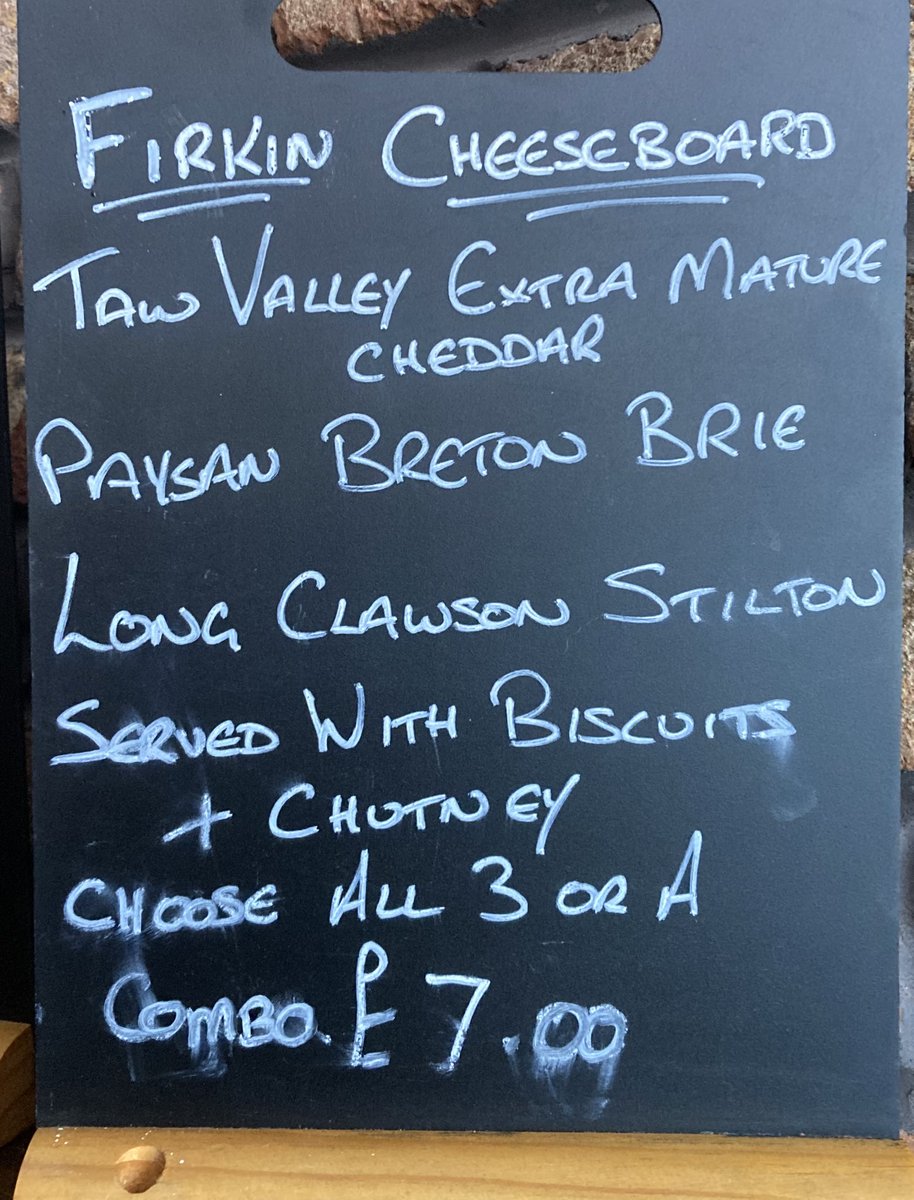 FIRKIN CHEESEBOARD
TAW VALLEY EXTRA MATURE
CHEDDAR
PAYSAN BRETON BRIE
LONG CLAWSON STILTON
SERVED WITH BISCUITS
+ CHUTNEY
CHOOSE ALL 3 OR A
COMBO. £7.00